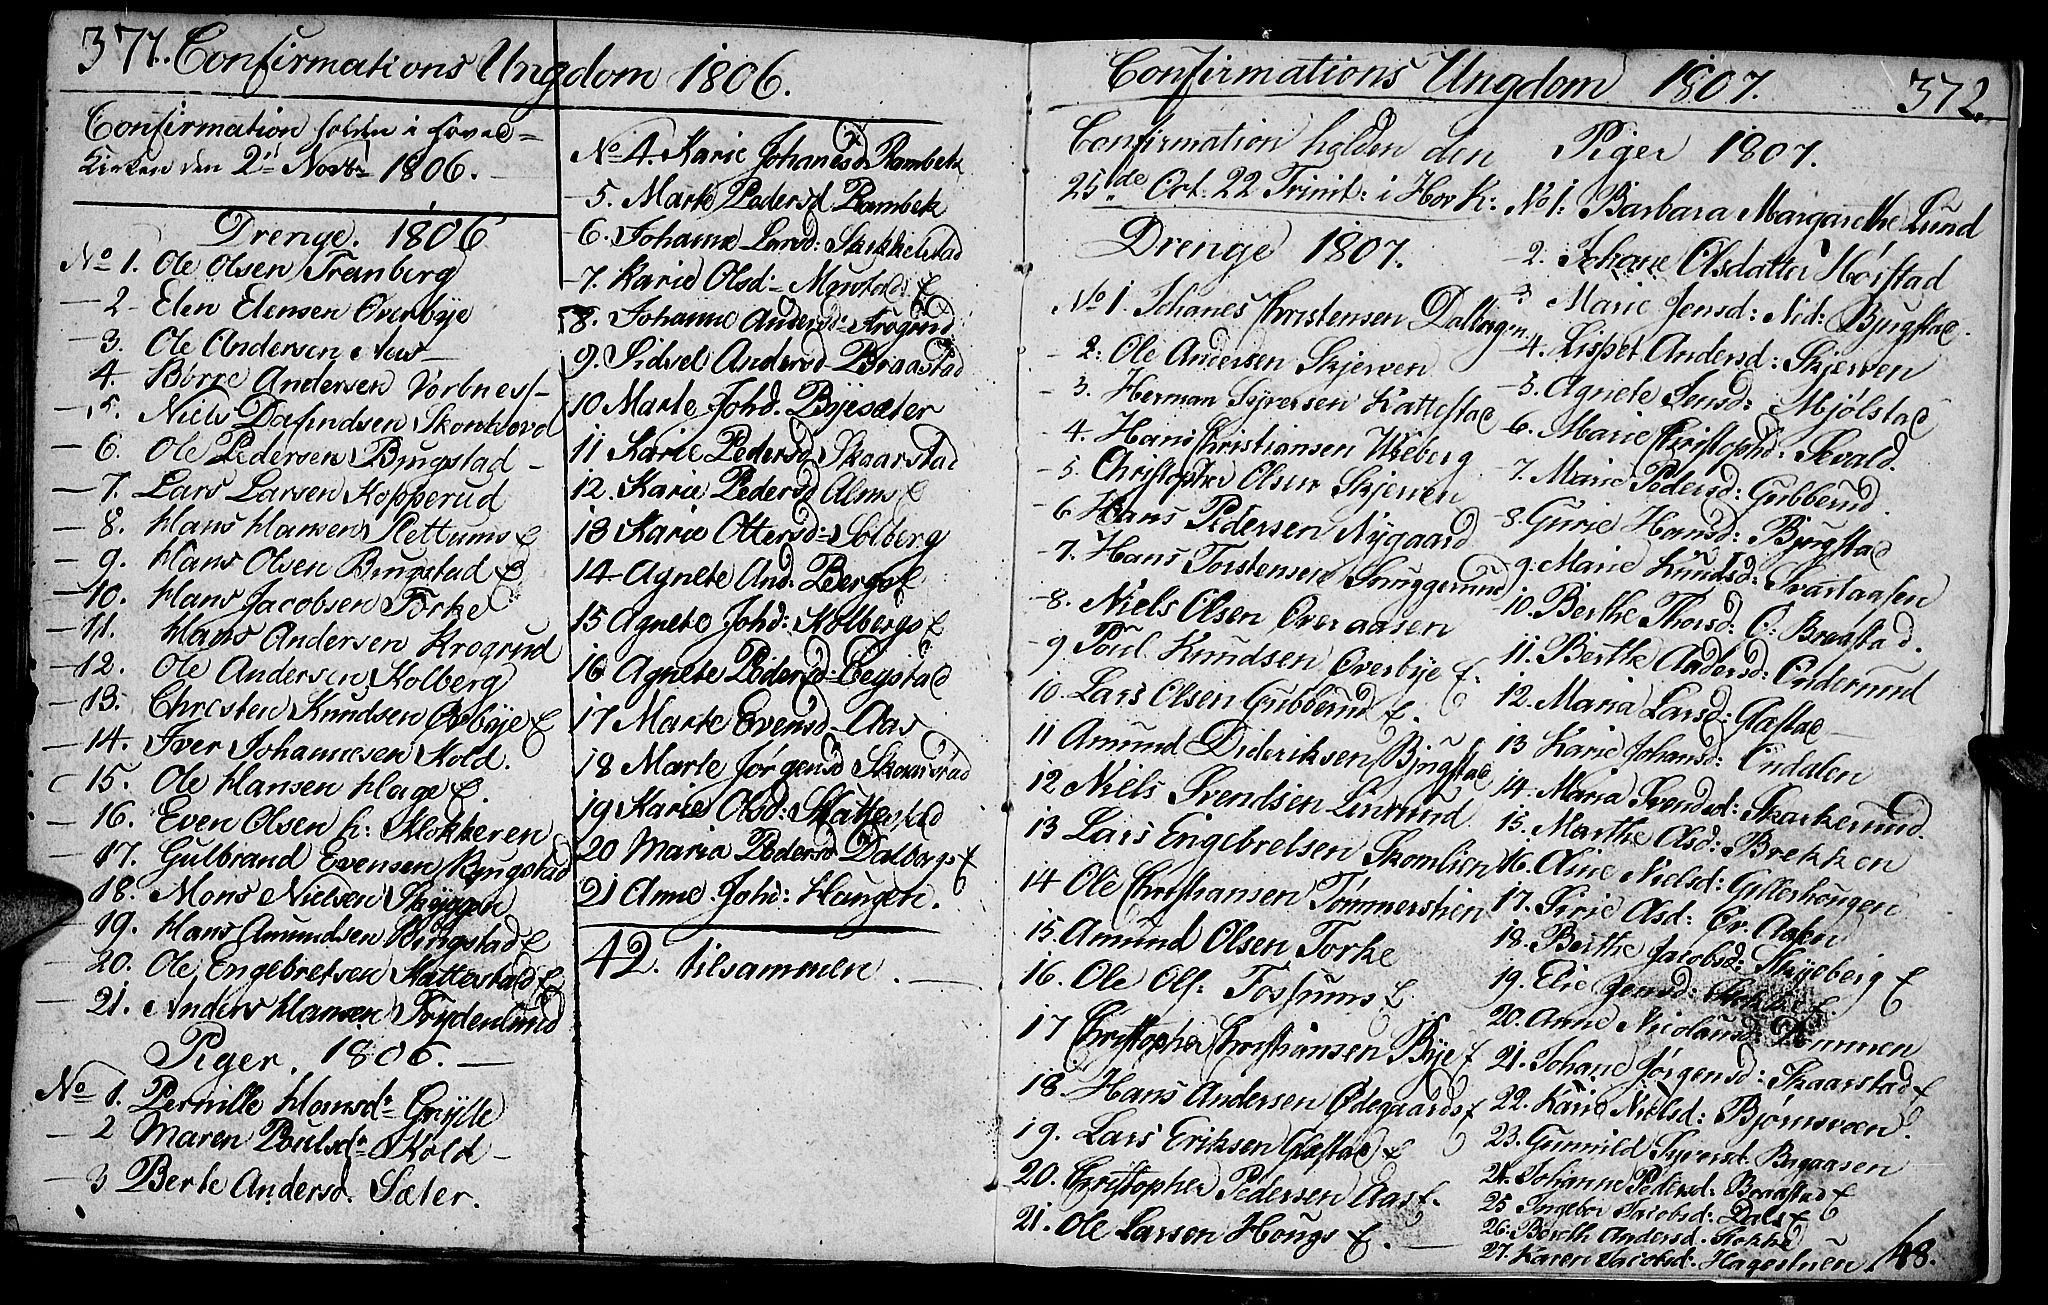 371. Confirmations Ungdom 1806.
Confirmation holden i Hoved=
Kirken den 2 Novbr 1806.
Drenge. 1806
No 1. Ole Olsen Tranberg
2 Elen Elensen Overbye
3. Ole Andersen
4. Børre Andersen Vorbness
5. Niels Dafindsen Skonhovd
6. Ole Pedersen Bingstad
7. Lars Larsen Kopperud
8. Hans Hansen Slettums E
9. Hans Olsen Bingstad E
10. Hans Jacobsen Torke
11. Hans Andersen Krogrud
12. Ole Andersen Kolberg
13. Christen Knudsen Overbye E
14. Iver Johannesen Kold.
15. Ole Hansen Hage E.
16. Even Olsen h: Klokkeren
17. Gulbrand Evensen Bingstad
18. Mons Nielsen Skyggen
19. Hans Amundsen Bingstad E
20. Ole Engebretsen Kattestad E
21. Anders Hansen Frydenlund
Piger. 1806.
No 1. Pernille Hansdr Grylle
2 Maren Poulsdr Kold
3 Berte Andersd. Sæter.
No 4. Karie Johanesd Rambek
5. Marte Pedersd Rambek
6. Johanne Larsd: Skikkelstad
7. Karie Olsd: Mustads E
8. Johanne Andersd: Krogrud
9. Sidsel Andersd Braastad
10 Marte Johd. Byesæter
11 Karie Pedersd Skaarstad
12. Karie Pedersd Alms E
13 Karie Ottersd: Solberg
14 Agnete And: Bergs E
15 Agnete Johd: Kolbergs E
16 Agnete Pedersd
17 Marte Evensd Aas
18 Marte Jørgensd Skaarstad
19 Karie Olsd: Kattestad
20 Maria Pedersd Dalborgs E
21 Anne Johd: Haugen.
42. tilsammen.
Confirmations Ungdom 1807. 372.
Confirmation holden den
25de Oct. 22 Trinit: i Hov K:
Drenge 1807.
No 1. Johanes Christensen Dalborgen
2: Ole Andersen Skjerven
3. Herman Syversen Kattestad
4. Hans Christiansen Wiborg
5. Christopher Olsen Skjerven
6 Hans Pedersen Nygaard
7. Hans Torstensen Snuggerund
8. Niels Olsen Overaasen
9 Poul Knudsen Overbye E.
10. Lars Olsen Gubberud E.
11 Amund Dideriksen Bjugstad
12 Niels Svendsen Linrund
13 Lars Engebretsen Skomlien
14 Ole Christiansen Tømmerstien
15. Amund Olsen Torke
16. Ole Ols: Fossums E
17 Christopher Christiansen Bye E
18. Hans Andersen Ødegaards E
19. Lars Eriksen Gaastad E
20. Christopher Pedersen Aas E
21. Ole Larsen Hougs E.
Piger 1807.
No 1: Barbara Margarethe Lund
2. Johane Olsdatter Hørstad
3 Marie Jensd: Ned: Bjugstad.
4. Lispet Andersd: Skjerven
5. Agnete Jensd: Mjølstad
6. Marie Christophd: Sevald.
7. Marie Pedersd: Gubberud.
8. Gurie Hansd: Bjugstad
9. Marie Knudsd: Svartaasen
10. Berthe Thorsd: O: Braastad.
11. Berthe Andersd: Enderund
12. Maria Larsd: Gaastad
13 Karie Johansd: Endalen
14. Maria Svendsd: Skarkerud.
15. Marthe Olsd: Brekken
16. Oline Nielsd: Gylleshougen
17. Sirie Olsd: Ør. Aasen
18. Berthe Jacobsd: Skyeberg E
19. Elie Jensd:
20. Anne Nicolausd:
21. Johane Jørgensd: Skaarstad E
22. Karie Nielsd: Bjørnsveen.
23. Gunnild Syversd. Bagaasen
24. Johanne Pedersd: Braastad E
25 Ingebor Jacobsd: Dals E
26. Berth Andersd. Kokke
27. Karen Jacobsd: Hagestuen 48.